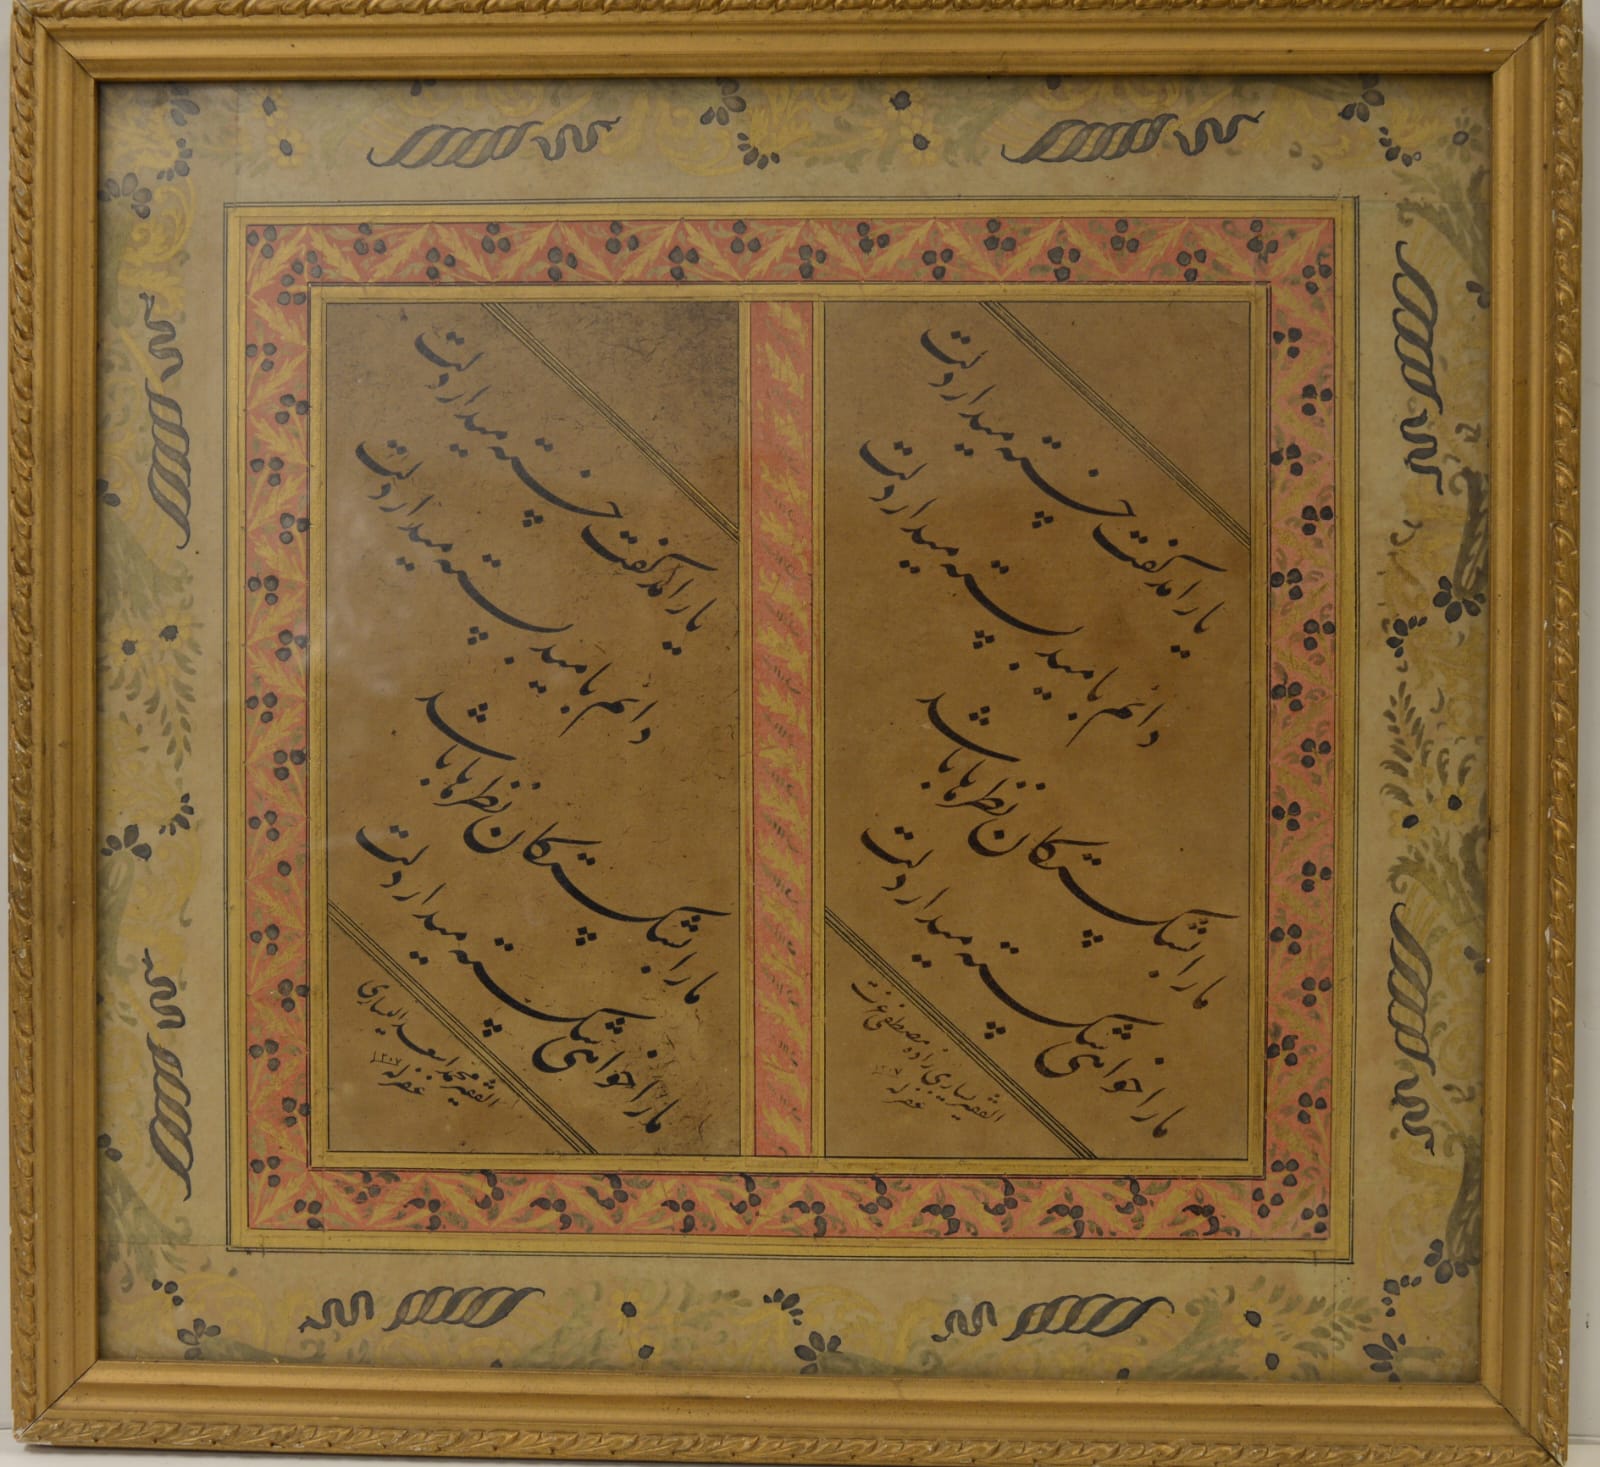 یار آمد گفت خسته میدار دلت
دائم بامید بسته میدار دلت
ما را بشکستگان نظرها باشد
ما را خواهی شکسته میدار دلت
الفقیر یساری زاده مصطفی عزت
غفر له
یار آمد گفت خسته میدار دلت
دائم بامید بسته میدار دلت
ما را بشکستگان نظرها باشد
ما را خواهی شکسته میدار دلت
الفقیر محمد اسعد الیساری
غفر له